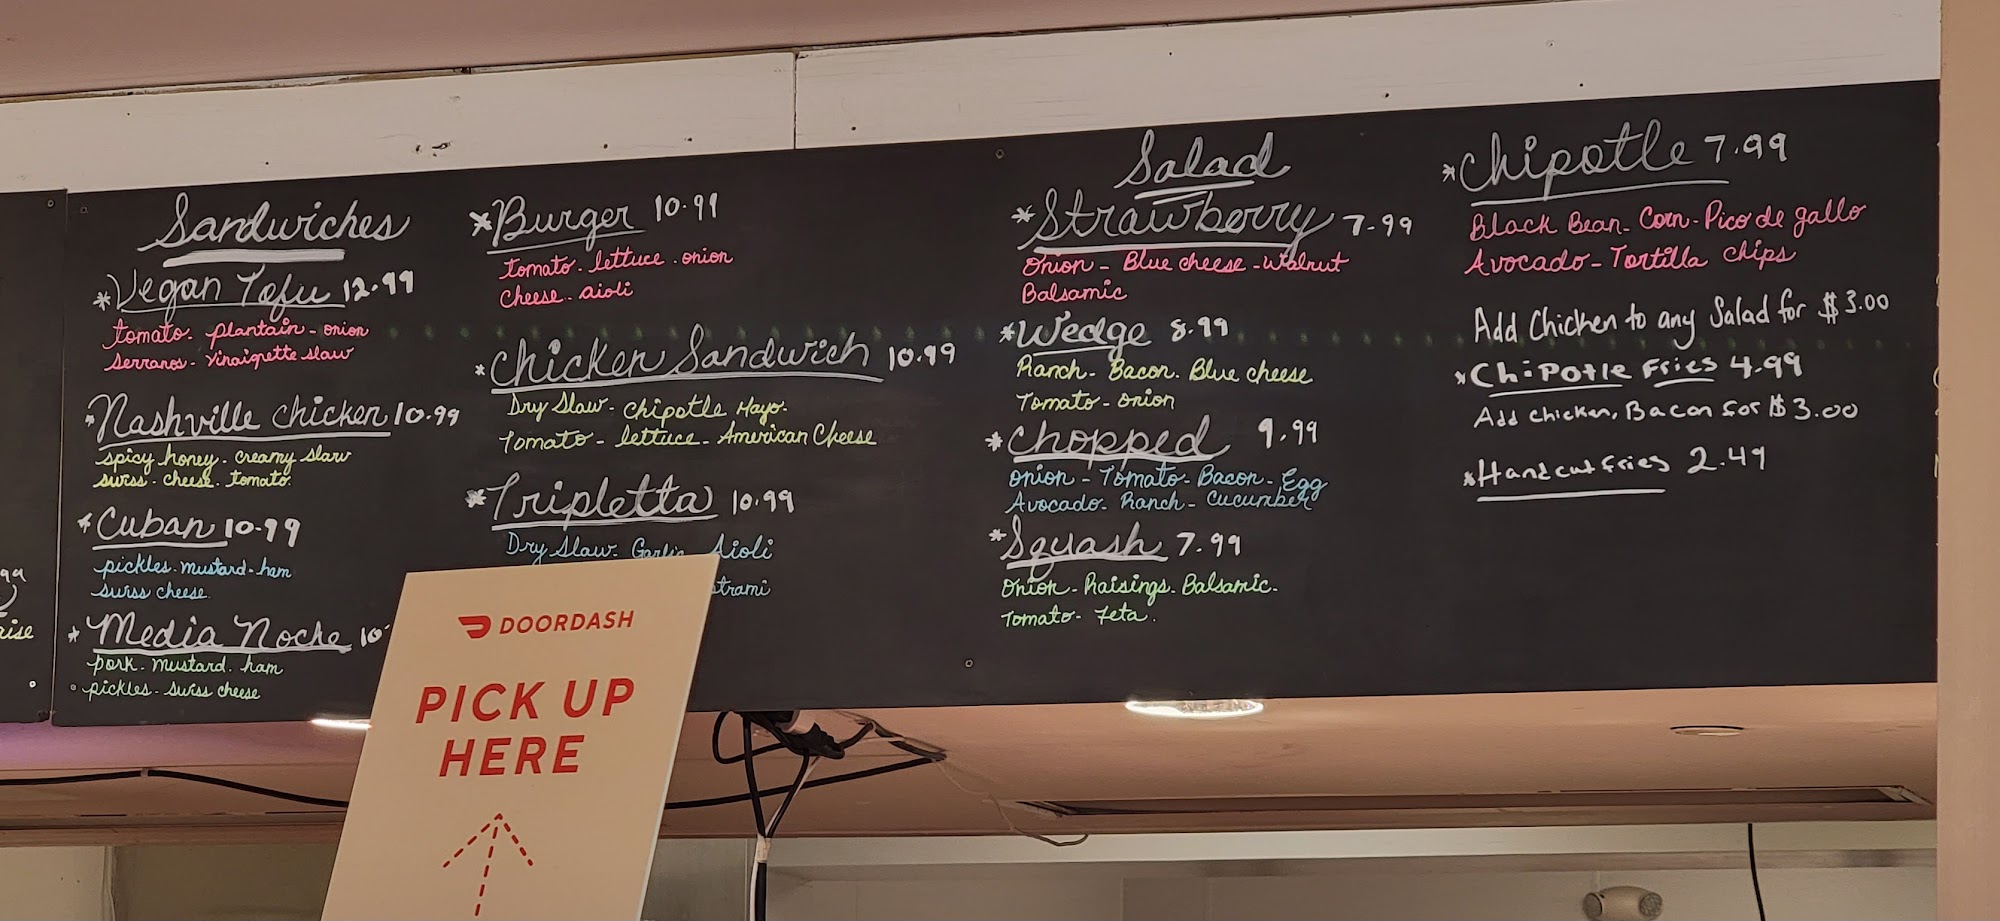 Sandwiches
*Vegan Tofu 12.99
tomato. plantain - onion
serranos - vinaigrette slaw
*Nashville chicken 10.99
spicy honey. creamy slaw
swiss. cheese. tomato.
*Cuban 10.99
pickles. mustard. ham
swiss cheese.
*Media Noche 10
pork. mustard. ham
pickles - swiss cheese
*Burger 10.99
tomato. lettuce. onion
cheese. aioli
*Chicken Sandwich 10.99
Dry Slaw. chipotle Mayo.
Tomato - lettuce - American Cheese
*Tripletta 10.99
Dry Slaw. Garlic Aioli
strami
Salad
*Strawberry 7.99
Onion - Blue cheese - Walnut
Balsamic
*Wedge 8.99
Ranch - Bacon. Blue cheese
Tomato - onion
*Chopped 9.99
onion - Tomato - Bacon - Egg
Avocado. Ranch - Cucumber
*Squash 7.99
Onion - Raisings. Balsamic.
Tomato - Feta.
*Chipotle 7.99
Black Bean - Corn - Pico de gallo
Avocado - Tortilla chips
Add Chicken to any Salad for $3.00
*Chipotle Fries 4.99
Add chicken, Bacon for $3.00
*Handcut fries 2.49
aise
DOORDASH
PICK UP
HERE